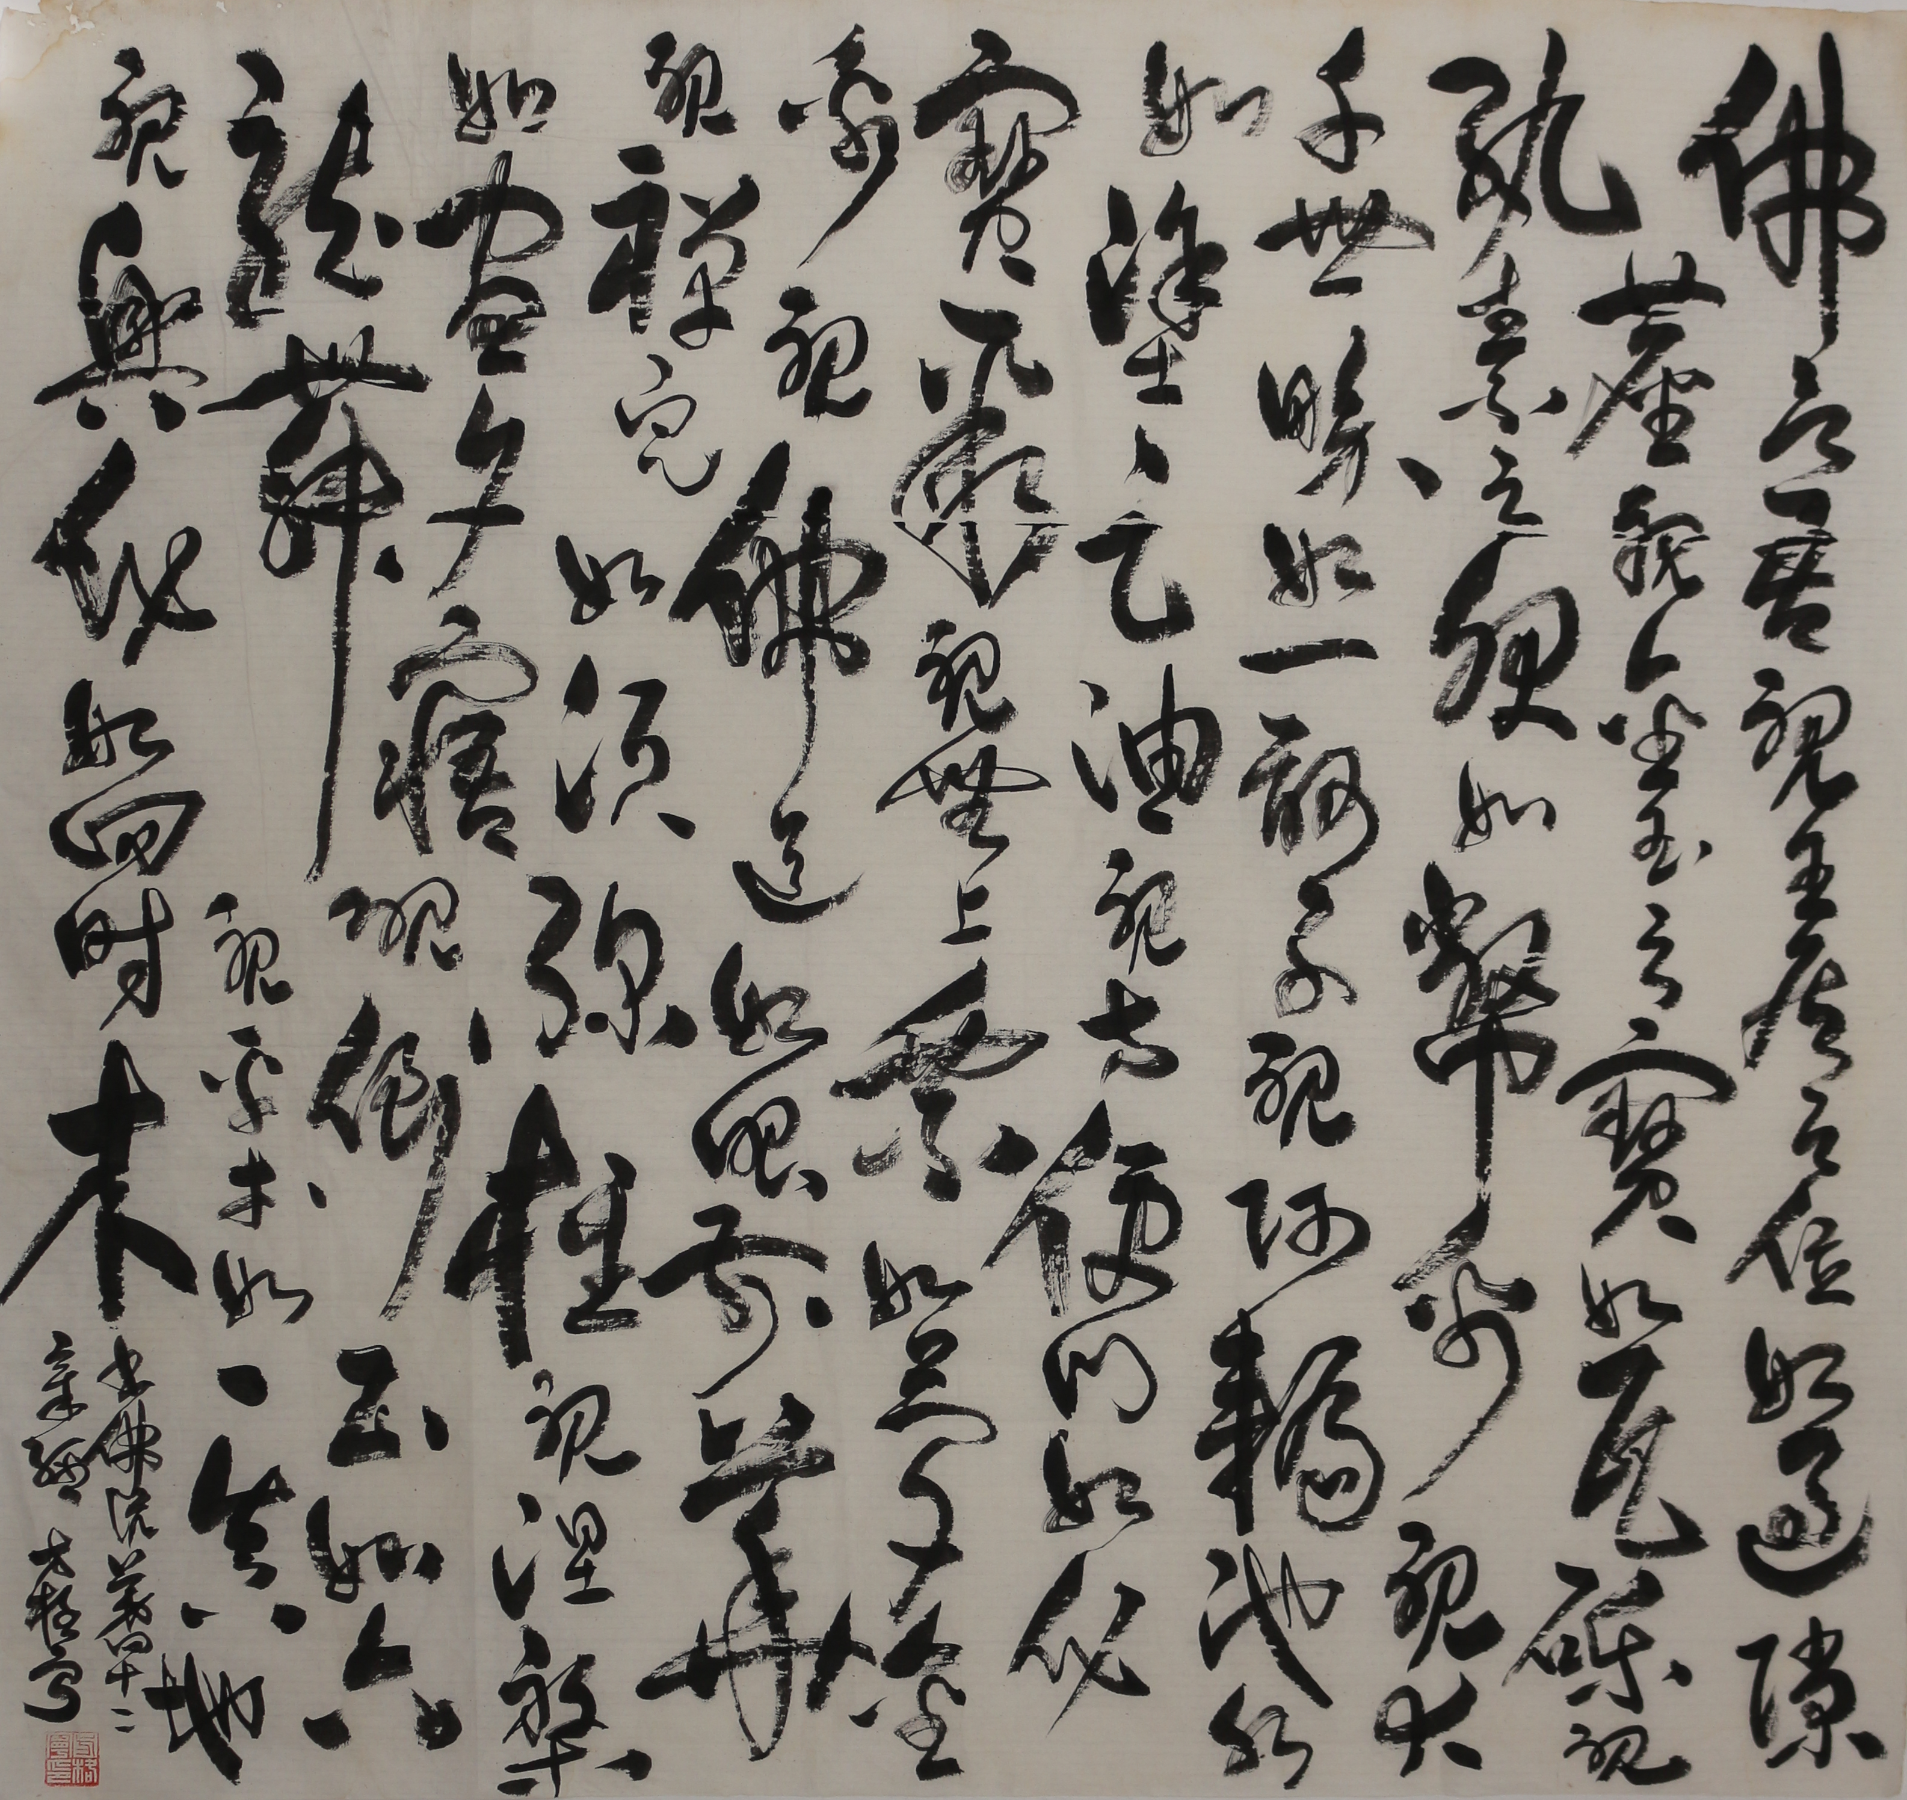 佛言吾視王侯之位如過隙
塵視金玉之寶如瓦礫視
紈素之服如幣帛視大
千世界如一訶子視阿耨池水
如塗足油視方便門如化
寶聚視無上乘如夢金
帛視佛道如眼前華
視禪定如須彌柱視涅槃
如晝夕寤視倒正如六
龍舞視平等如一真地
視興化如四時木
書佛說四十二
章經